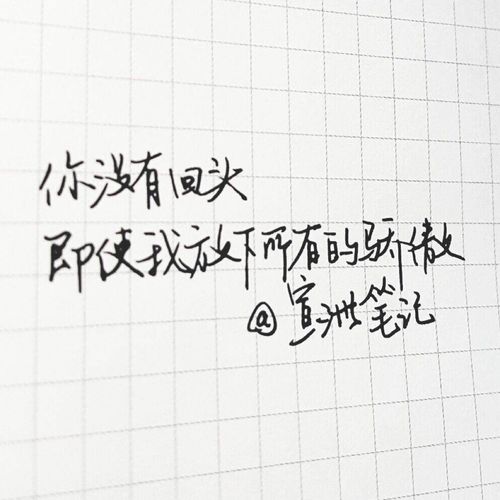 你没有回头
即使我放下所有的骄傲
@宣洲笔记